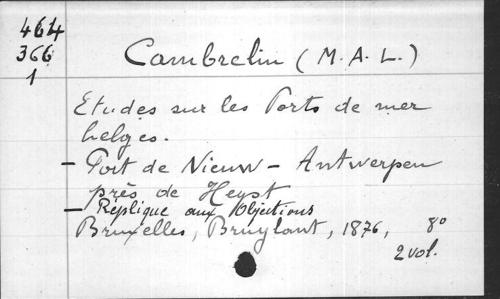 464
366
1
Cambrelin (M. A. L.)
Etudes sur les Ports de mer
belges.
- Port de Nieuw - Antwerpen
près de Heyst
- Réplique aux Objections
Bruxelles, Bruylant, 1876, 8°
2 vol.